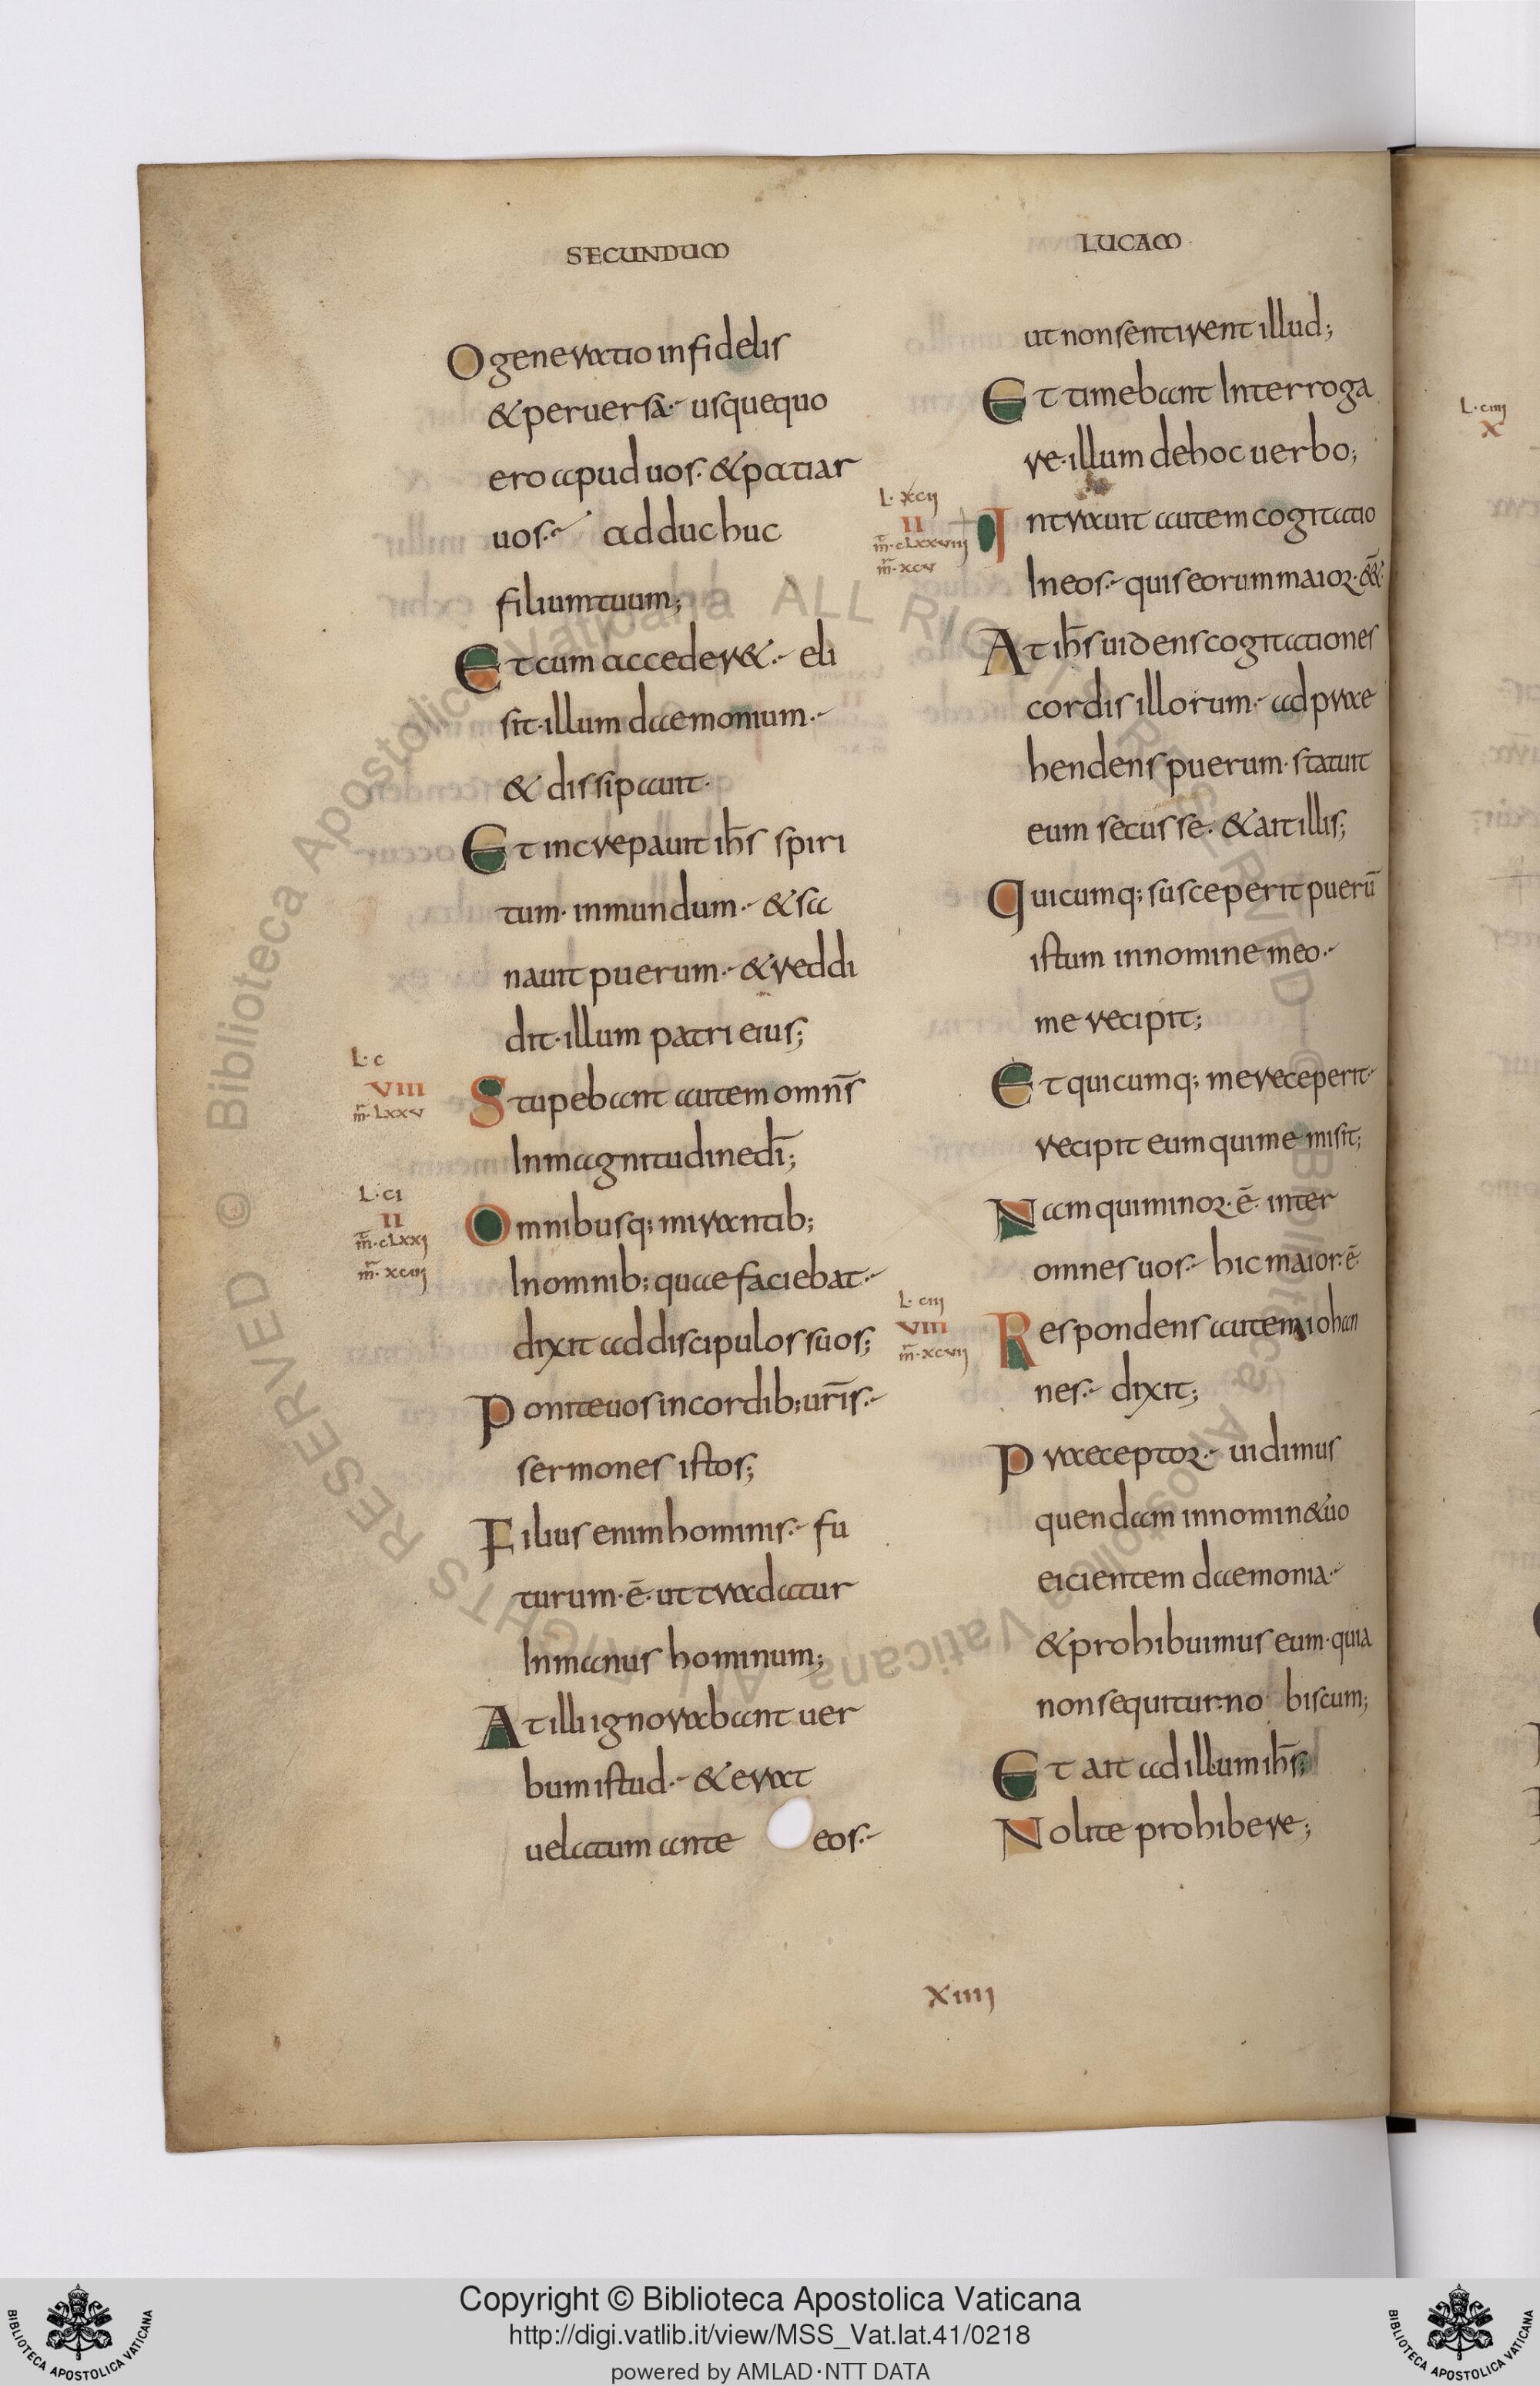 SECUNDUM
O generatio infidelis
& peruersa· usquequo
ero apud uos· & patiar
uos· adduc huc
filium tuum;
Et cum acceder&· eli
sit· illum daemonium·
& dissipauit·
Et increpauit ih̅s spiri
tum· inmundum· & sa
nauit puerum· & reddi
dit· illum patri eius;
L· c
VIII
m̅r· Lxxv
Stupebant autem omn̅s
In magnitudine d̅i;
L· ci
II
m̅t· cLxxj
m̅r· xciij
Omnibusq; mirantib;
In omnib; quae faciebat·
dixit ad discipulos suos;
Ponite uos in cordib; ur̅is·
sermones istos;
Filius enim hominis· fu
turum· e̅· ut tradatur
In manus hominum;
At illi ignorabant uer
bum istud· & erat
uelatum ante eos·
LUCAM
ut non sentirent illud;
Et timebant Interroga
re· illum de hoc uerbo;
L· xcij
II
m̅t· cLxxviij
m̅r· xcv
Intrauit autem cogitatio
In eos· quis eorum maior· ee̅&
At ih̅s uidens cogitationes
cordis illorum· adprae
hendens puerum· statuit
eum secus se· & ait illis;
Quicumq; susceperit pueru̅
istum in nomine meo·
me recipit;
Et quicumq; me receperit·
recipit eum qui me misit;
Nam qui minor· e̅· inter
omnes uos· hic maior· e̅·
L· ciij
VIII
m̅r· xcvij
Respondens autem iohan
nes· dixit;
Praeceptor· uidimus
quendam in nomin& uo
eicientem daemonia·
& prohibuimus eum· quia
non sequitur no biscum;
Et ait ad illum ih̅s;
Nolite prohibere;
XIIIJ
L· ciiij
X
© Biblioteca Apostolica Vaticana ALL RIGHTS RESERVED
© Biblioteca Apostolica Vaticana ALL RIGHTS RESERVED
Copyright © Biblioteca Apostolica Vaticana
http://digi.vatlib.it/view/MSS_Vat.lat.41/0218
powered by AMLAD·NTT DATA
BIBLIOTECA APOSTOLICA VATICANA
BIBLIOTECA APOSTOLICA VATICANA